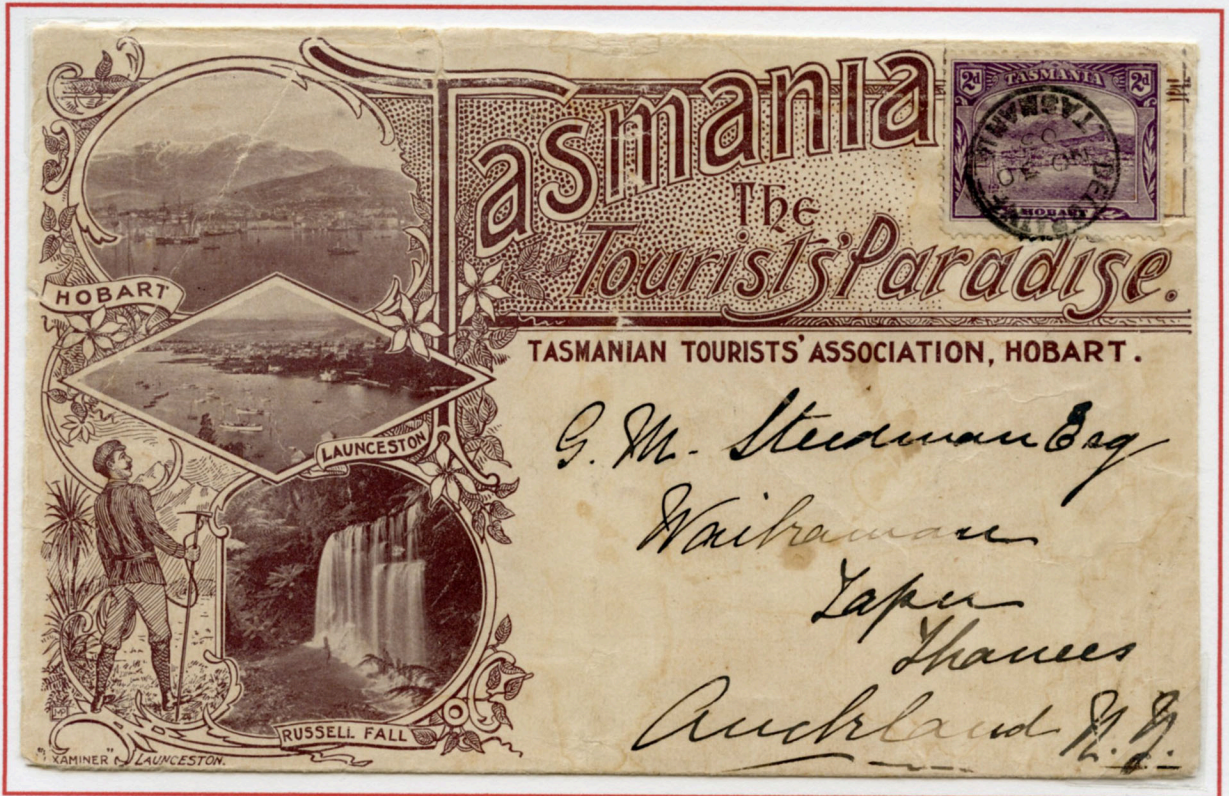 Tasmania
The
Tourists' Paradise.
TASMANIAN TOURISTS' ASSOCIATION, HOBART.
2d TASMANIA 2d
HOBART
TASMANIA
HOBART
LAUNCESTON
RUSSELL FALL
"EXAMINER" LAUNCESTON.
G. M. Steedman Esq
Tapu
Thames
Auckland N.Z.